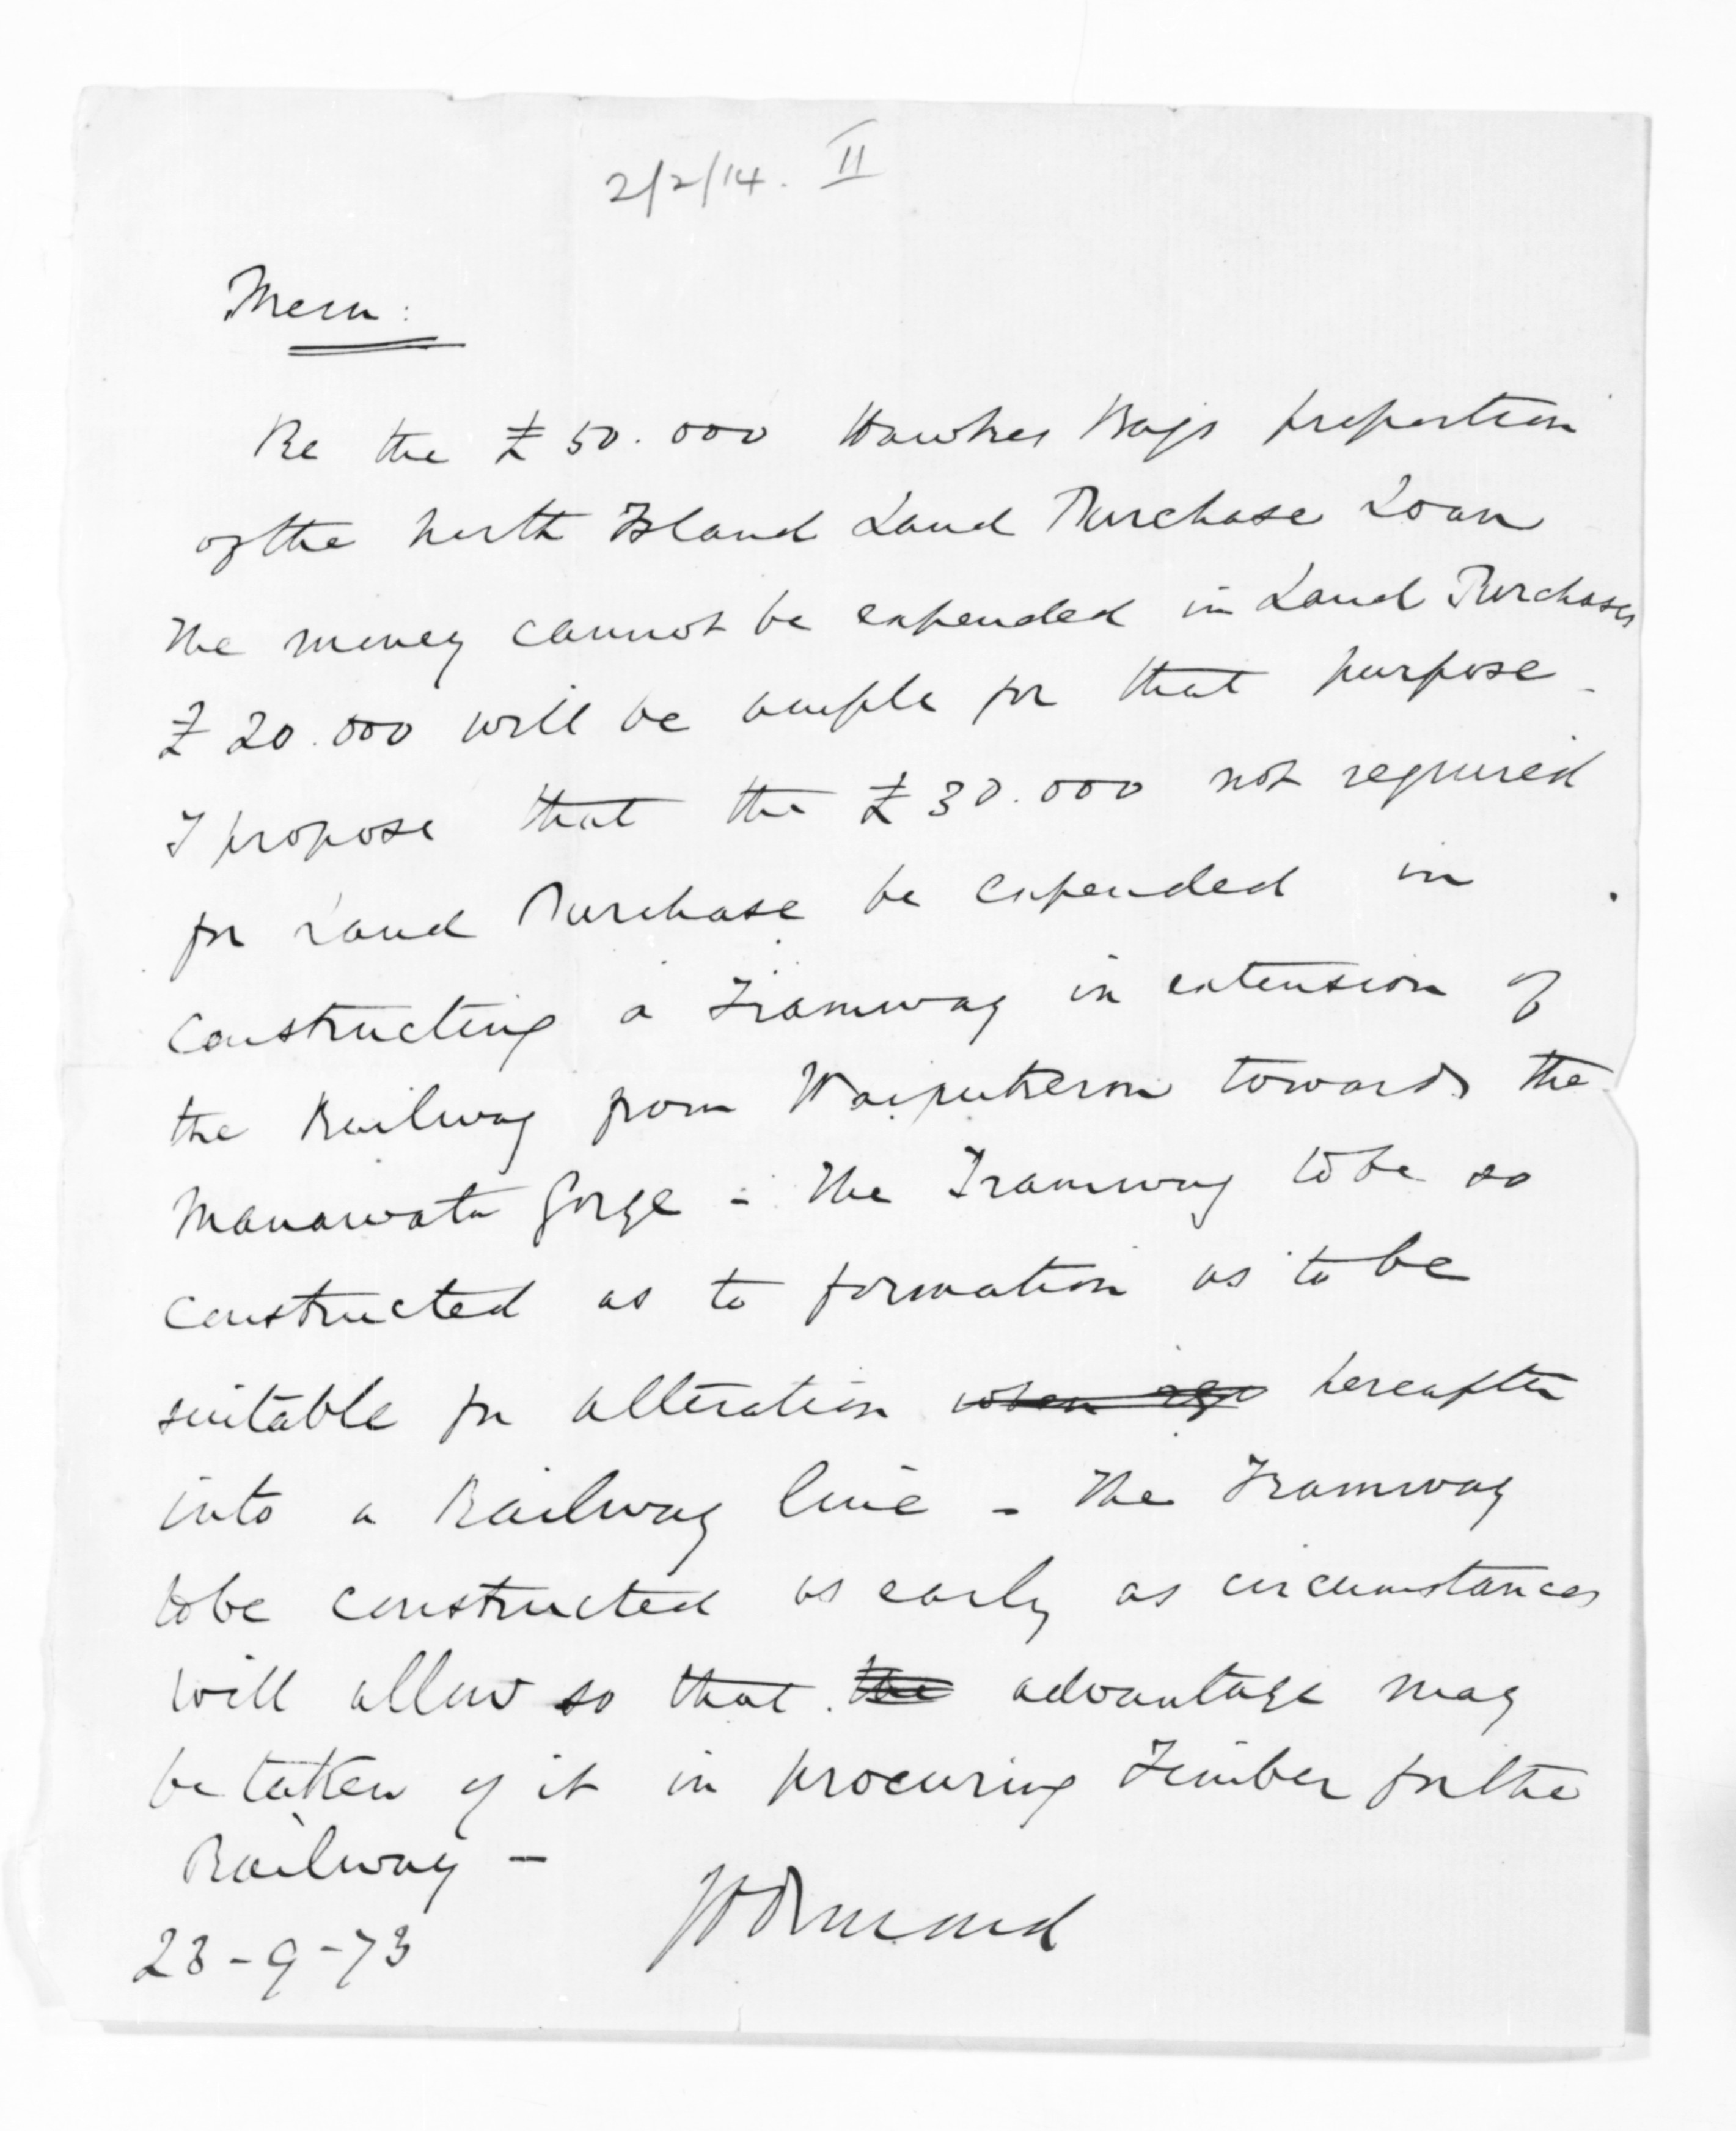 2/2/14. II
Mem:
Re the £50.000 Hawkes Bays proportion
of the North Island Land Purchase Loan
The money cannot be expended in Land Purchases
£20.000 will be ample for that purpose -
I propose that the £30.000 not required
for Land Purchase be expended in
constructing a Tramway in extension of
the Railway from Waipukerau towards the
Manawatu Gorge - The Tramway to be so
constructed as to formation as to be
suitable for alteration when hereafter
into a Railway line - The Tramway
to be constructed as early as circumstances
will allow so that the advantage may
be taken of it in procuring Timber for the
Railway -
23-9-73 JDOrmond